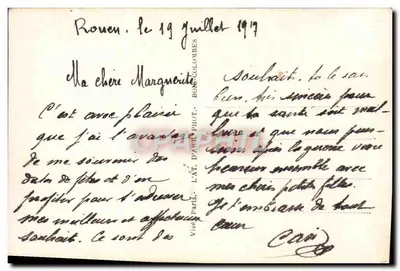 Rouen. le 19 Juillet 1917
Ma chère Marguerite,
C'est avec plaisir
que j'ai l'avantage
de me souvenir des
dates de fêtes et d'en
profiter pour t'adresser
mes meilleurs et affectueux
souhait. Ce sont des
souhait. tu le sais
bien, très sincère pour
que ta santé soit meil-
leure et que nous puis-
sions après la guerre vivre
heureux ensemble avec
mes chères petites filles.
Je t'embrasse de tout
cœur
Visé Paris. - L'AT. D'ART PHOT. - BOIS-COLOMBES